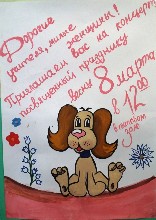 Дорогие
учителя, милые женщины!
Приглашаем вас на концерт,
посвященный празднику
весны 8 марта
в 12 00
в актовом
зале